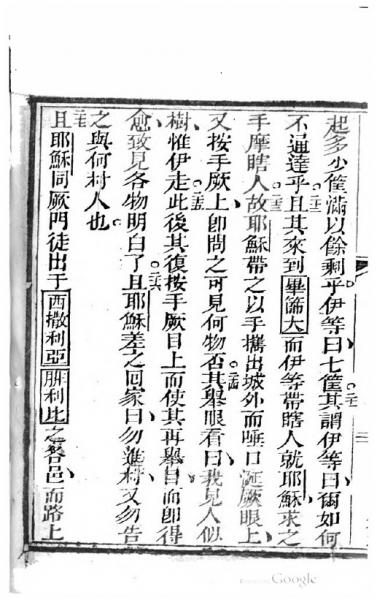 起多少筐滿以餘剩乎伊等曰七筐其謂伊等曰爾如何
二一
不通達乎且其來到畢篩大而伊等帶瞎人就耶穌求之
二二
手摩瞎人故耶穌帶之以手攜出坡外而唾口涎厥眼上
二三
又按手厥上卽問之可見何物否其舉眼看曰我見人似
二四
樹惟伊走此後其復按手厥目上而使其再舉目而卽得
二五
愈致見各物明白了且耶穌差之回家曰勿進村又勿告
二六
之與何村人也
且耶穌同厥門徒出于西撒利亞腓利比之各邑而路上
二七
Google